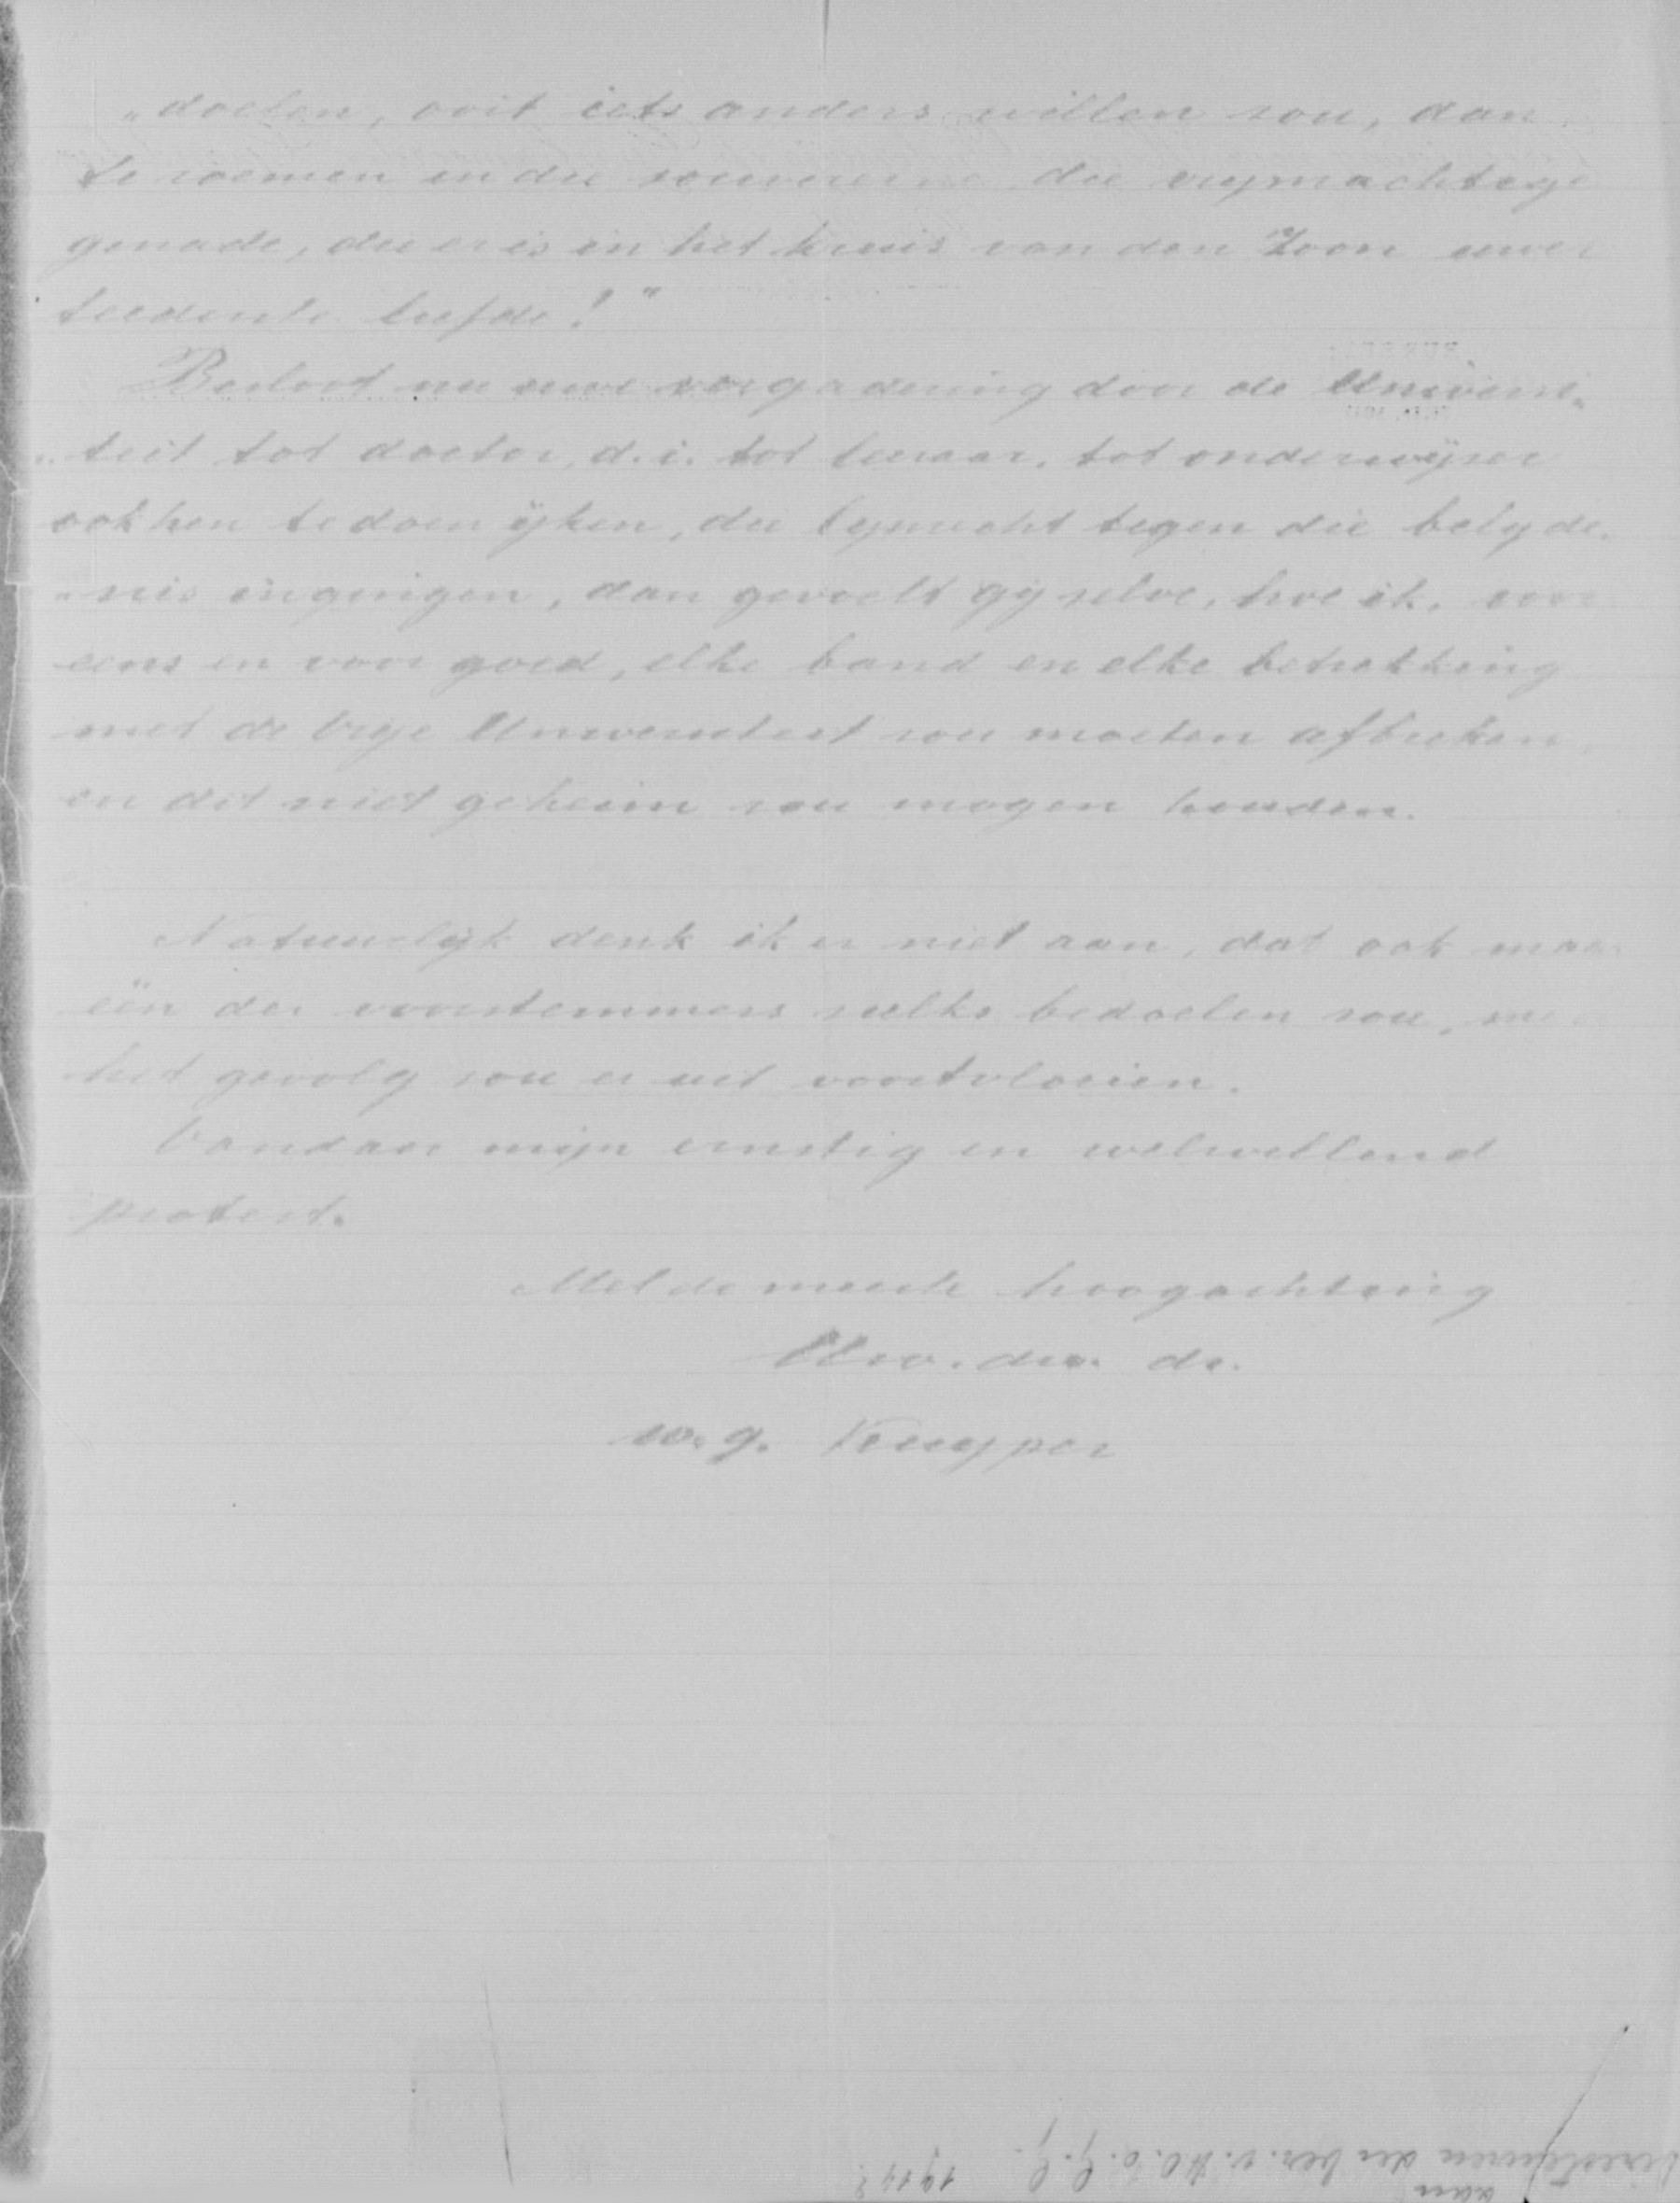 „doelen, ooit iets anders willen zou, dan
te roemen in die souvereine, die vrijmachtige
genade, die er is in het kruis van den Zoon uwer
teederste liefde!"
Besloot nu uwe vergadering door de Universi„
„teit tot doctor, d.i. tot leeraar, tot onderwijzer
ook hen te doen ijken, die lijnrecht tegen die belijde„
„nis ingingen, dan gevoelt gij zelve, hoe ik, voor
eens en voor goed, elke band en elke betrekking
met de Vrije Universiteit zou moeten afbreken,
en dit niet geheim zou mogen houden.
Natuurlijk denk ik er niet aan, dat ook maar
één der voorstemmers zulks bedoelen zou, maar
het gevolg zou er uit voortvloeien.
Vandaar mijn ernstig en welwillend
protest.
Met de meeste hoogachting
Uw. dw. dr.
w.g. Kuyper
aan
Directeuren der Ver. v. H.O. o. G. G. 1914?